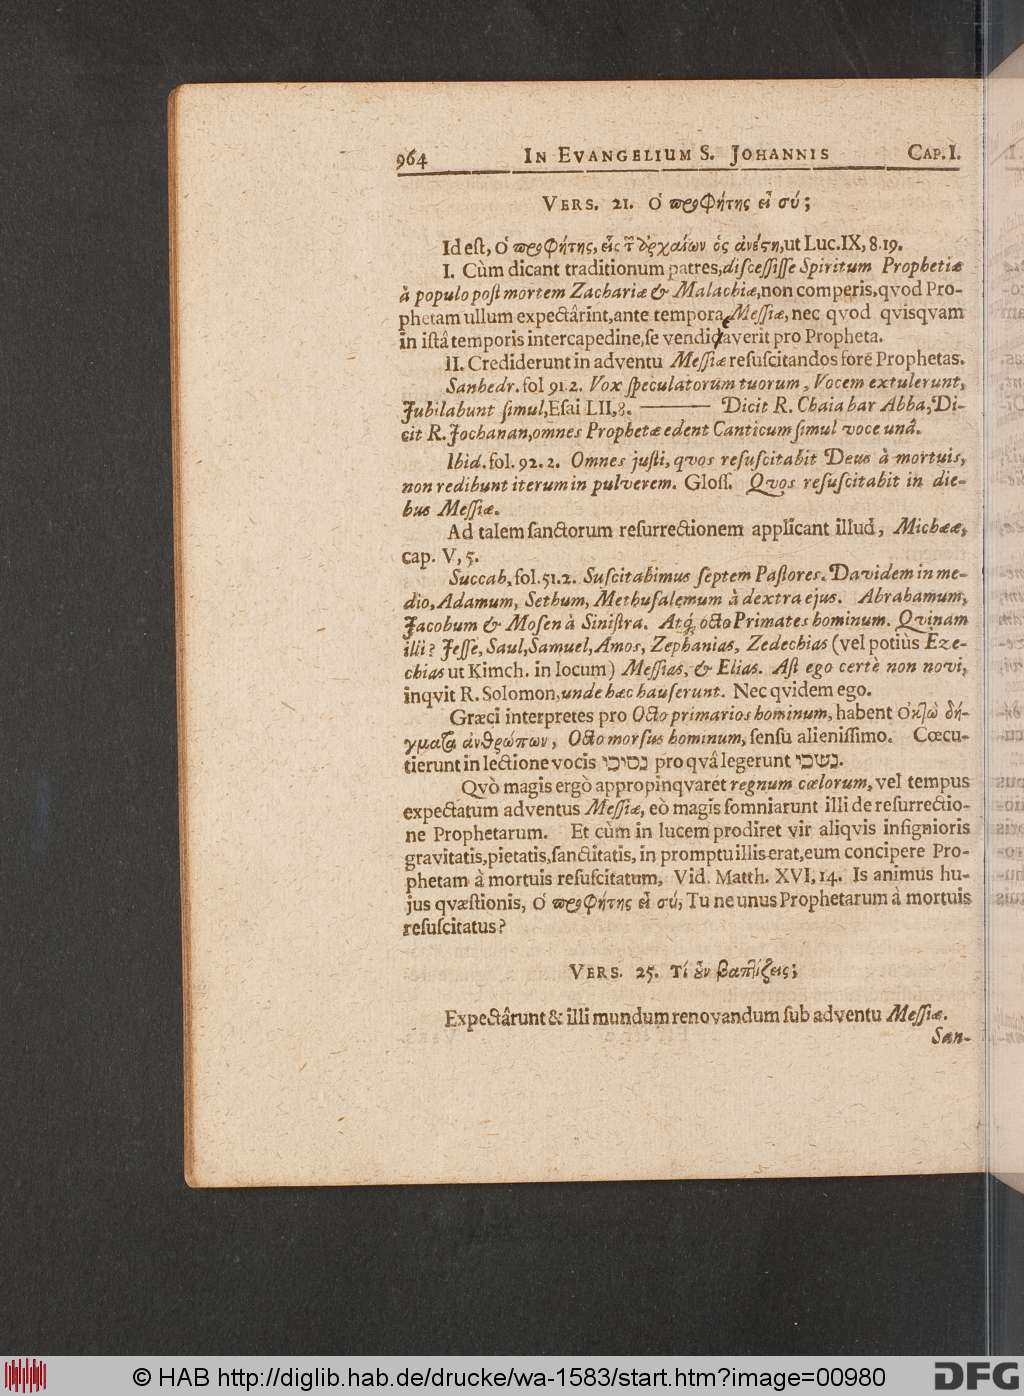 964 IN EVANGELIUM S. JOHANNIS CAP. I.
VERS. 21. Ὁ προφήτης εἶ σύ;
Id est, ὁ προφήτης, εἷς τ̃ ἀρχαίων ὃς ἀνέϛη, ut Luc. IX, 8. 19.
I. Cùm dicant traditionum patres, discessisse Spiritum Prophetiæ
à populo post mortem Zachariæ & Malachiæ, non comperis, qvod Pro-
phetam ullum expectârint, ante tempora Messiæ, nec qvod qvisqvam
in istâ temporis intercapedine, se venditaverit pro Propheta.
II. Crediderunt in adventu Messiæ resuscitandos fore Prophetas.
Sanhedr. fol 91. 2. Vox speculatorum tuorum, Vocem extulerunt,
Jubilabunt simul, Esai LII, 8. ——— Dicit R. Chaia bar Abba, Di-
cit R. Jochanan, omnes Prophetæ edent Canticum simul voce unâ.
Ibid. fol. 92. 2. Omnes justi, qvos resuscitabit Deus à mortuis,
non redibunt iterum in pulverem. Gloss. Qvos resuscitabit in die-
bus Messiæ.
Ad talem sanctorum resurrectionem applicant illud, Michææ,
cap. V, 5.
Succah, fol. 51. 2. Suscitabimus septem Pastores. Davidem in me-
dio, Adamum, Sethum, Methusalemum à dextra ejus. Abrahamum,
Jacobum & Mosen à Sinistra. Atq; octo Primates hominum. Qvinam
illi? Jesse, Saul, Samuel, Amos, Zephanias, Zedechias (vel potiùs Eze-
chias ut Kimch. in locum) Messias, & Elias. Ast ego certè non novi,
inqvit R. Solomon, unde hæc hauserunt. Nec qvidem ego.
Græci interpretes pro Octo primarios hominum, habent Ὀκτὼ δή-
γματα ἀνθρώπων, Octo morsus hominum, sensu alienissimo. Cœcu-
tierunt in lectione vocis נסיכי pro qvâ legerunt נשכי.
Qvò magis ergò appropinqvaret regnum cœlorum, vel tempus
expectatum adventus Messiæ, eò magis somniarunt illi de resurrectio-
ne Prophetarum. Et cùm in lucem prodiret vir aliqvis insignioris
gravitatis, pietatis, sanctitatis, in promptu illis erat, eum concipere Pro-
phetam à mortuis resuscitatum, Vid. Matth. XVI, 14. Is animus hu-
jus qvæstionis, Ὁ προφήτης εἶ σύ, Tu ne unus Prophetarum à mortuis
resuscitatus?
VERS. 25. Τί ȣ̓ν βαπτίζεις;
Expectârunt & illi mundum renovandum sub adventu Messiæ.
San-
© HAB http://diglib.hab.de/drucke/wa-1583/start.htm?image=00980
DFG